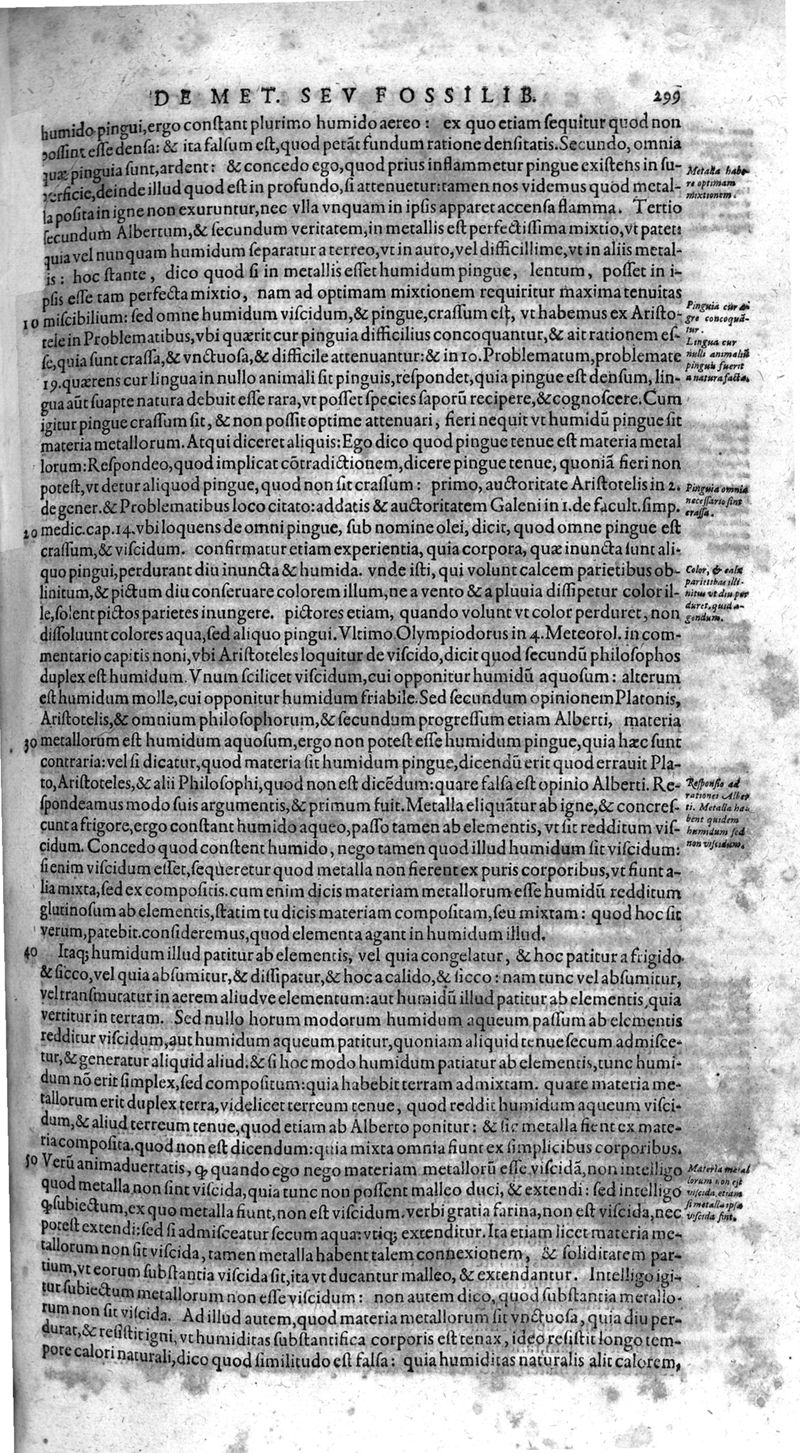 DE MET. SEV FOSSILIB. 299
humido pingui, ergo constant plurimo humido aereo: ex quo etiam sequitur quod non
possint esse densa: & ita falsum est, quod petãt fundum ratione densitatis. Secundo, omnia
quæ pinguia sunt, ardent: & concedo ego, quod prius inflammetur pingue existens in su-
perficie, deinde illud quod est in profundo, si attenuetur: tamen nos videmus quod metal-
la posita in igne non exuruntur, nec vlla vnquam in ipsis apparet accensa flamma. Tertio
secundum Albertum, & secundum veritatem, in metallis est perfectissima mixtio, vt patet:
quia vel nunquam humidum separatur a terreo, vt in auro, vel difficillime, vt in aliis metal-
is: hoc stante, dico quod si in metallis esset humidum pingue, lentum, posset in i-
psis esse tam perfecta mixtio, nam ad optimam mixtionem requiritur maxima tenuitas
10 miscibilium: sed omne humidum viscidum, & pingue, crassum est, vt habemus ex Aristo-
tele in Problematibus, vbi quærit cur pinguia difficilius concoquantur, & ait rationem es-
se, quia sunt crassa, & vnctuosa, & difficile attenuantur: & in 10. Problematum, problemate
19. quærens cur lingua in nullo animali sit pinguis, respondet, quia pingue est densum, lin-
gua aut suapte natura debuit esse rara, vt posset species saporũ recipere, & cognoscere. Cum
igitur pingue crassum sit, & non possit optime attenuari, fieri nequit vt humidũ pingue sit
materia metallorum. Atqui diceret aliquis: Ego dico quod pingue tenue est materia metal
lorum: Respondeo, quod implicat cõtradictionem, dicere pingue tenue, quoniã fieri non
potest, vt detur aliquod pingue, quod non sit crassum: primo, auctoritate Aristotelis in 2.
de gener. & Problematibus loco citato: addatis & auctoritatem Galeni in 1. de facult. simp.
20 medic. cap. 14. vbi loquens de omni pingue, sub nomine olei, dicit, quod omne pingue est
crassum, & viscidum. confirmatur etiam experientia, quia corpora, quæ inuncta sunt ali-
quo pingui, perdurant diu inuncta & humida. vnde isti, qui volunt calcem parietibus ob-
linitum, & pictum diu conseruare colorem illum, ne a vento & a pluuia dissipetur color il-
le, solent pictos parietes inungere. pictores etiam, quando volunt vt color perduret, non
dissoluunt colores aqua, sed aliquo pingui. Vltimo Olympiodorus in 4. Meteorol. in com-
mentario capitis noni, vbi Aristoteles loquitur de viscido, dicit quod secundũ philosophos
duplex est humidum. Vnum scilicet viscidum, cui opponitur humidũ aquosum: alterum
est humidum molle, cui opponitur humidum friabile. Sed secundum opinionem Platonis,
Aristotelis, & omnium philosophorum, & secundum progressum etiam Alberti, materia
30 metallorum est humidum aquosum, ergo non potest esse humidum pingue, quia hæc sunt
contraria: vel si dicatur, quod materia sit humidum pingue, dicendũ erit quod errauit Pla-
to, Aristoteles, & alii Philosophi, quod non est dicẽdum: quare falsa est opinio Alberti. Re-
spondeamus modo suis argumentis, & primum fuit. Metalla eliquãtur ab igne, & concres-
cunt a frigore, ergo constant humido aqueo, passo tamen ab elementis, vt sit redditum vis-
cidum. Concedo quod constent humido, nego tamen quod illud humidum sit viscidum:
si enim viscidum esset, sequeretur quod metalla non fierent ex puris corporibus, vt fiunt a-
lia mixta, sed ex compositis. cum enim dicis materiam metallorum esse humidũ redditum
glutinosum ab elementis, statim tu dicis materiam compositam, seu mixtam: quod hoc sit
verum, patebit. consideremus, quod elementa agant in humidum illud.
40 Itaq; humidum illud patitur ab elementis, vel quia congelatur, & hoc patitur a frigido
& sicco, vel quia absumitur, & dissipatur, & hoc a calido, & sicco: nam tunc vel absumitur,
vel transmutatur in aerem aliudve elementum: aut humidũ illud patitur ab elementis, quia
vertitur in terram. Sed nullo horum modorum humidum aqueum passum ab elementis
redditur viscidum, aut humidum aqueum patitur, quoniam aliquid tenue secum admisce-
tur, & generatur aliquid aliud. & si hoc modo humidum patiatur ab elementis, tunc humi-
dum nõ erit simplex, sed compositum: quia habebit terram admixtam. quare materia me-
tallorum erit duplex terra, videlicet terreum tenue, quod reddit humidum aqueum visci-
dum, & aliud terreum tenue, quod etiam ab Alberto ponitur: & sic metalla fient ex mate-
ria composita. quod non est dicendum: quia mixta omnia fiunt ex simplicibus corporibus.
50 Verũ animaduertatis, ꝙ quando ego nego materiam metallorũ esse viscidã, non intelligo
quod metalla non sint viscida, quia tunc non possent malleo duci, & extendi: sed intelligo
ꝙ subiectum, ex quo metalla fiunt, non est viscidum. verbi gratia farina, non est viscida, nec
potest extendi: sed si admisceatur secum aqua: vtiq; extenditur. Ita etiam licet materia me-
tallorum non sit viscida, tamen metalla habent talem connexionem, & soliditatem par-
tium, vt eorum substantia viscida sit, ita vt ducantur malleo, & extendantur. Intelligo igi-
tur subiectum metallorum non esse viscidum: non autem dico, quod substantia metallo-
rum non sit viscida. Ad illud autem, quod materia metallorum sit vnctuosa, quia diu per-
durat, & resistit igni, vt humiditas substantifica corporis est tenax, ideo resistit longo tem-
pore calori naturali, dico quod similitudo est falsa: quia humiditas naturalis alit calorem,
Metalla habe-
re optimam
mixtionem.
Pinguia cur æ-
gre concoquã-
tur.
Lingua cur
nulli animali
pinguis fuerit
a natura facta.
Pinguia omnia
necessario sint
crassa.
Color, & calx
parietibus illi-
nitus vt diu per
duret, quid a-
gendum.
Responsio ad
rationes Alber
ti. Metalla ha-
bent quidem
humidum sed
non viscidum.
Materia metal
lorum non est
viscida, etiam
si metalla ipsa
viscida sint.